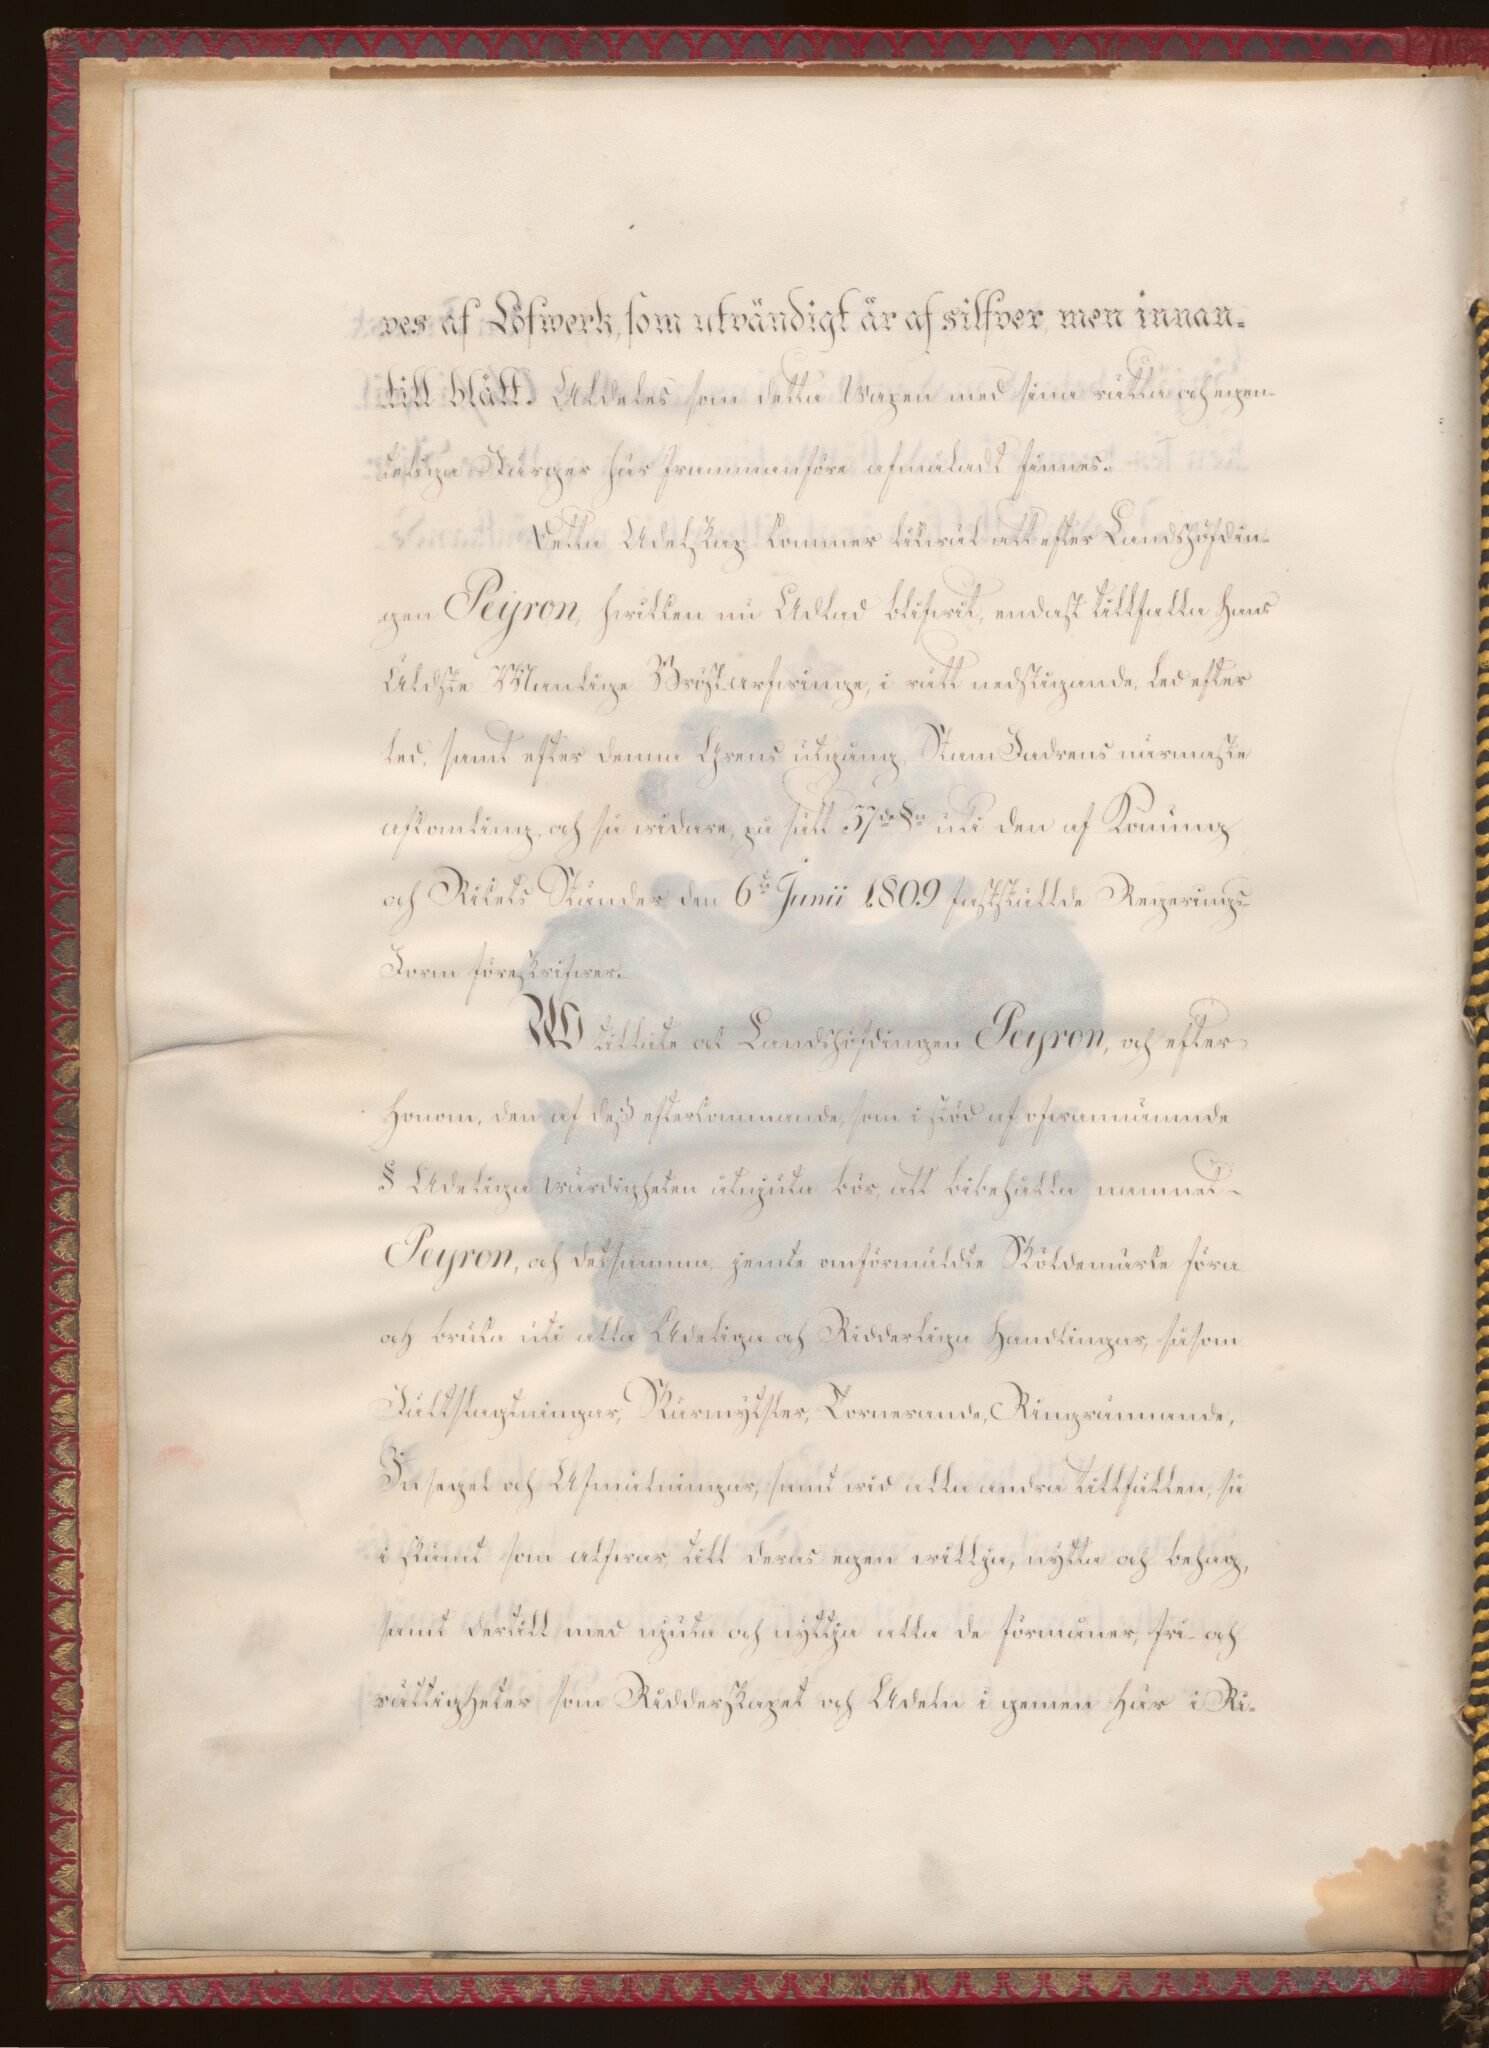 ves af Löfwerk, som utvändigt är af silfver, men innan-
till blått. Aldeles som detta Wapen med sina rätta och egen-
teliga Färger här frammanföre afmåladt finnes.
Detta Adelskap kommer likwäl att efter Landshöfdin-
gen Peyron, hwilken nu Adlad blifwit, endast tillfalla Hans
Äldste Manlige Bröstarfwinge, i rätt nedstigande Led efter
led, samt efter denna Grens utgång, StamFadrens närmaste
afkomling, och så widare, på sätt 37de §n uti den af Konung
och Rikets Ständer den 6te Junii 1809 fastställde Regerings-
Form föreskrifwer.
Wi tillåte ock Landshöfdingen Peyron, och efter
Honom, den af deß efterkommande, som i stöd af ofwannämnde
§ Adeliga wärdigheten åtnjuta bör, att bibehålla namnet
Peyron, och detsamma jemte omförmäldte Sköldemärke föra
och bruka uti alla Adeliga och Ridderliga Handlingar, såsom
Fältslagtningar, Skärmytsler, Tornerande, Ringrännande,
Insegel och Afmålningar, samt wid alla andra tillfällen, så
i skämt som alfwar, till deras egen willja, nytta och behag,
samt dertill med njuta och nyttja alla de förmåner, fri- och
rättigheter som Ridderskapet och Adeln i gemen här i Ri-